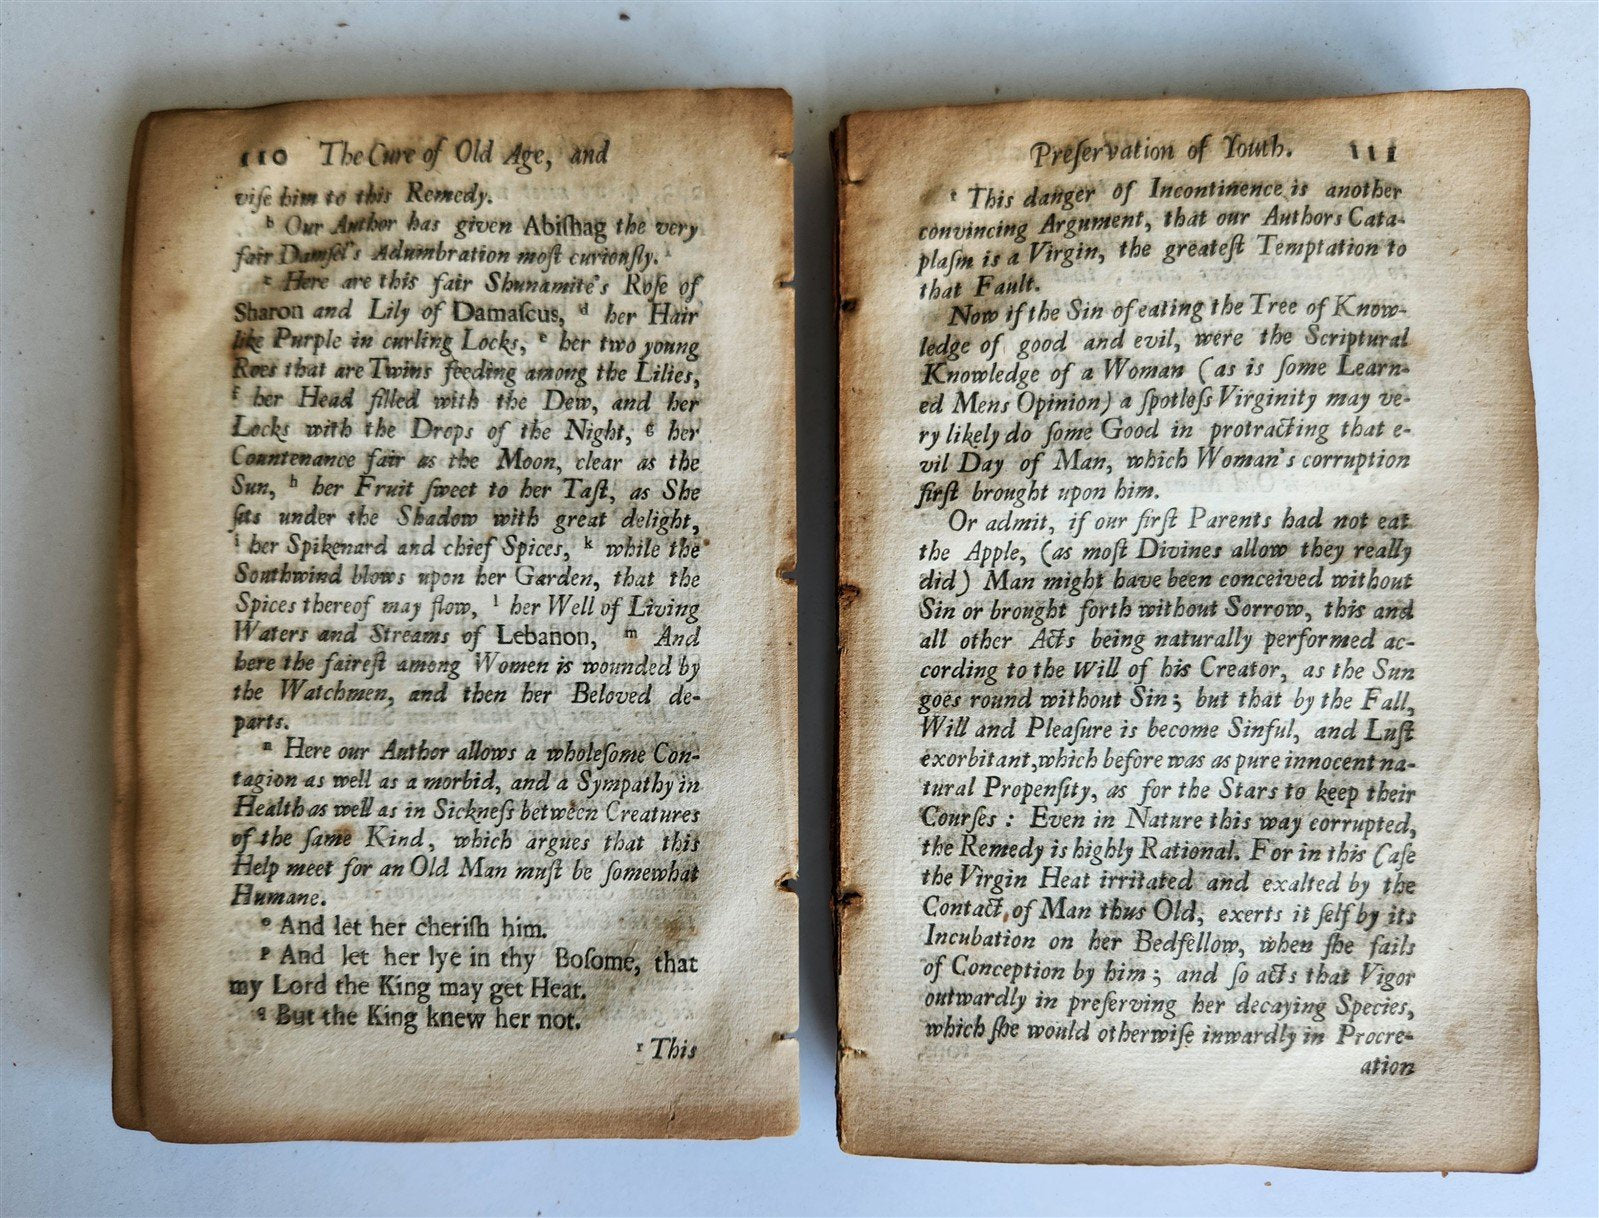 110 The Cure of Old Age, and
viſe him to this Remedy.
b Our Author has given Abiſhag the very
fair Damſel's Adumbration moſt curiouſly.
c Here are this fair Shunamite's Roſe of
Sharon and Lily of Damaſcus, d her Hair
like Purple in curling Locks, e her two young
Roes that are Twins feeding among the Lilies,
f her Head filled with the Dew, and her
Locks with the Drops of the Night, g her
Countenance fair as the Moon, clear as the
Sun, h her Fruit ſweet to her Taſt, as She
ſits under the Shadow with great delight,
i her Spikenard and chief Spices, k while the
Southwind blows upon her Garden, that the
Spices thereof may flow, l her Well of Living
Waters and Streams of Lebanon, m And
here the faireſt among Women is wounded by
the Watchmen, and then her Beloved de-
parts.
n Here our Author allows a wholeſome Con-
tagion as well as a morbid, and a Sympathy in
Health as well as in Sickneſs between Creatures
of the ſame Kind, which argues that this
Help meet for an Old Man muſt be ſomewhat
Humane.
o And let her cheriſh him.
p And let her lye in thy Boſome, that
my Lord the King may get Heat.
q But the King knew her not.
r This
Preſervation of Youth. 111
r This danger of Incontinence is another
convincing Argument, that our Authors Cata-
plaſm is a Virgin, the greateſt Temptation to
that Fault.
Now if the Sin of eating the Tree of Know-
ledge of good and evil, were the Scriptural
Knowledge of a Woman (as is ſome Learn-
ed Mens Opinion) a ſpotleſs Virginity may ve-
ry likely do ſome Good in protracting that e-
vil Day of Man, which Woman's corruption
firſt brought upon him.
Or admit, if our firſt Parents had not eat
the Apple, (as moſt Divines allow they really
did) Man might have been conceived without
Sin or brought forth without Sorrow, this and
all other Acts being naturally performed ac-
cording to the Will of his Creator, as the Sun
goes round without Sin; but that by the Fall,
Will and Pleaſure is become Sinful, and Luſt
exorbitant, which before was as pure innocent na-
tural Propenſity, as for the Stars to keep their
Courſes: Even in Nature this way corrupted,
the Remedy is highly Rational. For in this Caſe
the Virgin Heat irritated and exalted by the
Contact of Man thus Old, exerts it ſelf by its
Incubation on her Bedfellow, when ſhe fails
of Conception by him; and ſo acts that Vigor
outwardly in preſerving her decaying Species,
which ſhe would otherwiſe inwardly in Procre-
ation